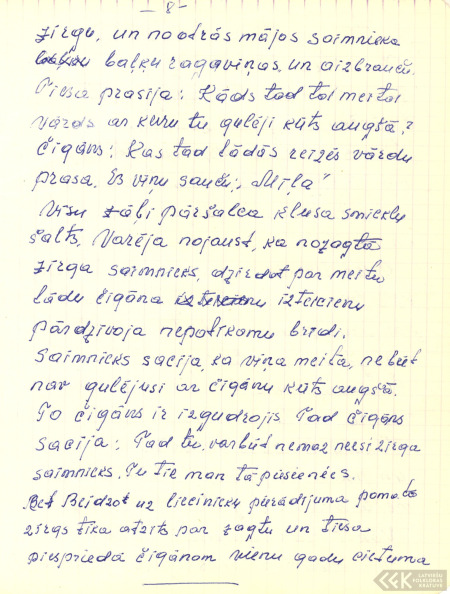 - 8 -
zirgu, un no otrās mājas saimnieka
baļķu ragaviņas, un aizbrauču.
Tiesa prasija: Kāds tad tai meitai
vārds ar kuru tu gulēji kūts augšā?
Čigāns: Kas tad tādās reizēs vārdu
prasa. Es viņu saucu, "Mīļā"
Visu zāļi pāršalca klusa smieklu
šalts, Varēja nojaust, ka nozagtā
zirga saimnieks, dzirdot par meitu
tādu čigāna izteicienu
pārdzīvoja nepatīkamu brīdi.
Saimnieks sacija, ka viņa meita, nebūt
nav gulējusi ar čigānu kūts augšā.
To čigāns ir izgudrojis Tad čigāns
sacija: Tad tu varbūt nemaz neesi zirga
saimnieks. Tu tie man tā
Bet Beidzot uz liecinieku parādījuma pamata
zirgs tika atzīts par zagtu un tiesa
piesprieda čigānam vienu gadu cietuma
LATVIEŠU
FOLKLORAS
KRĀTUVE